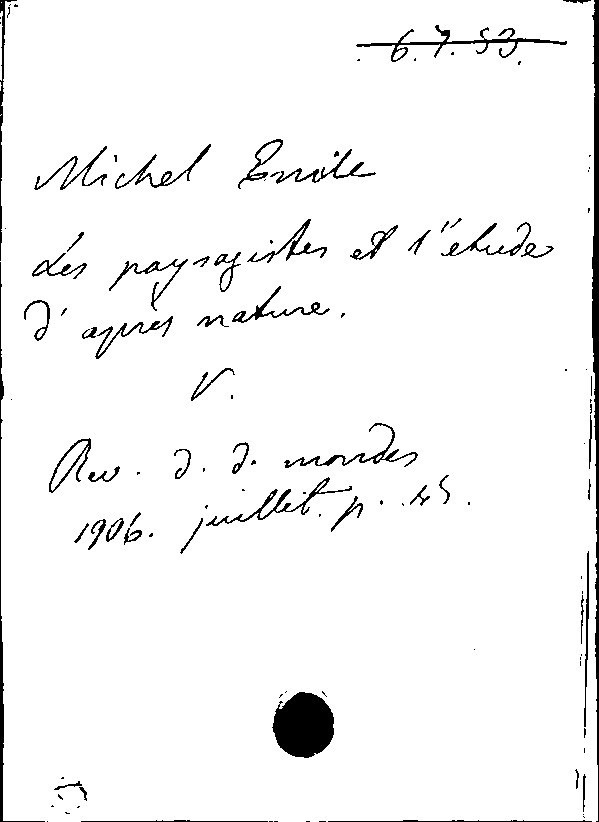 6.7.53.
Michel Emile
Les paysagistes et l'étude
d'après nature.
V.
Rev. d. d. mondes
1906. juillet. p. 45.